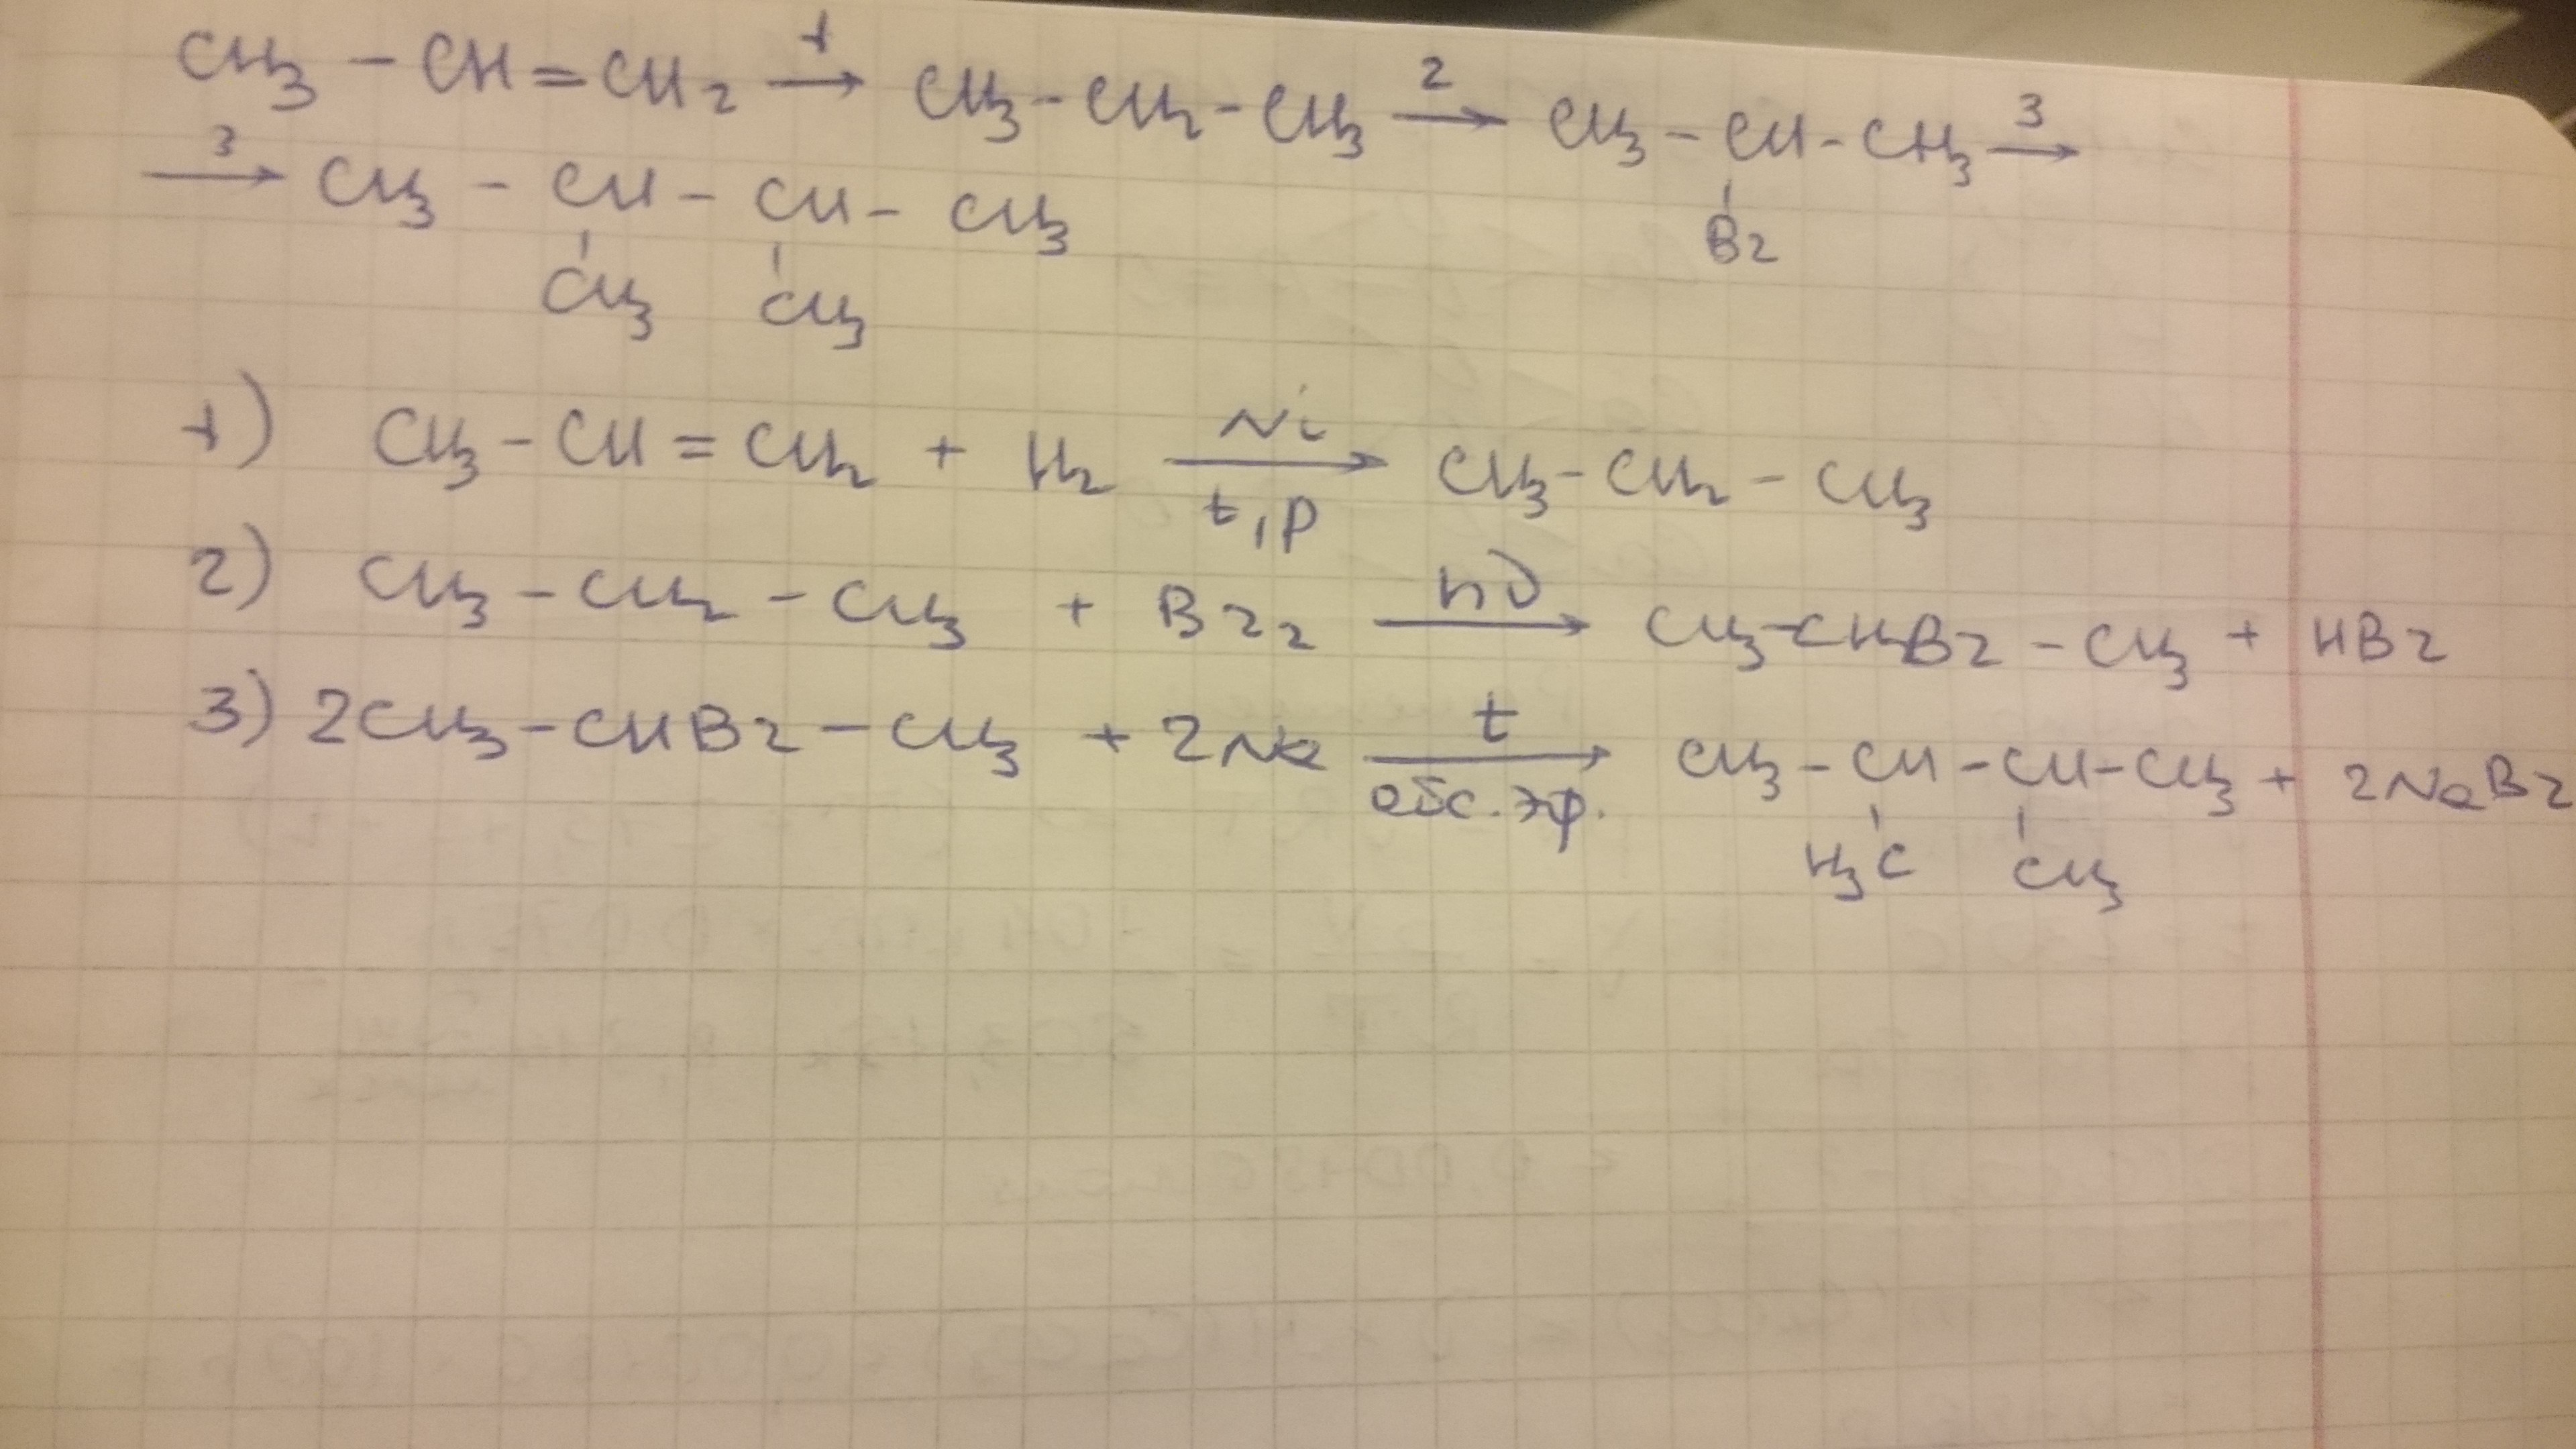 CH3 - CH = CH2 →1 CH3 - CH2 - CH3 →2 CH3 - CH - CH3 →3
Br
→3 CH3 - CH - CH - CH3
CH3 CH3
1) CH3 - CH = CH2 + H2 →Ni t, p CH3 - CH2 - CH3
2) CH3 - CH2 - CH3 + Br2 →hν CH3 - CHBr - CH3 + HBr
3) 2CH3 - CHBr - CH3 + 2Na →t абс. эф. CH3 - CH - CH - CH3 + 2NaBr
H3C CH3